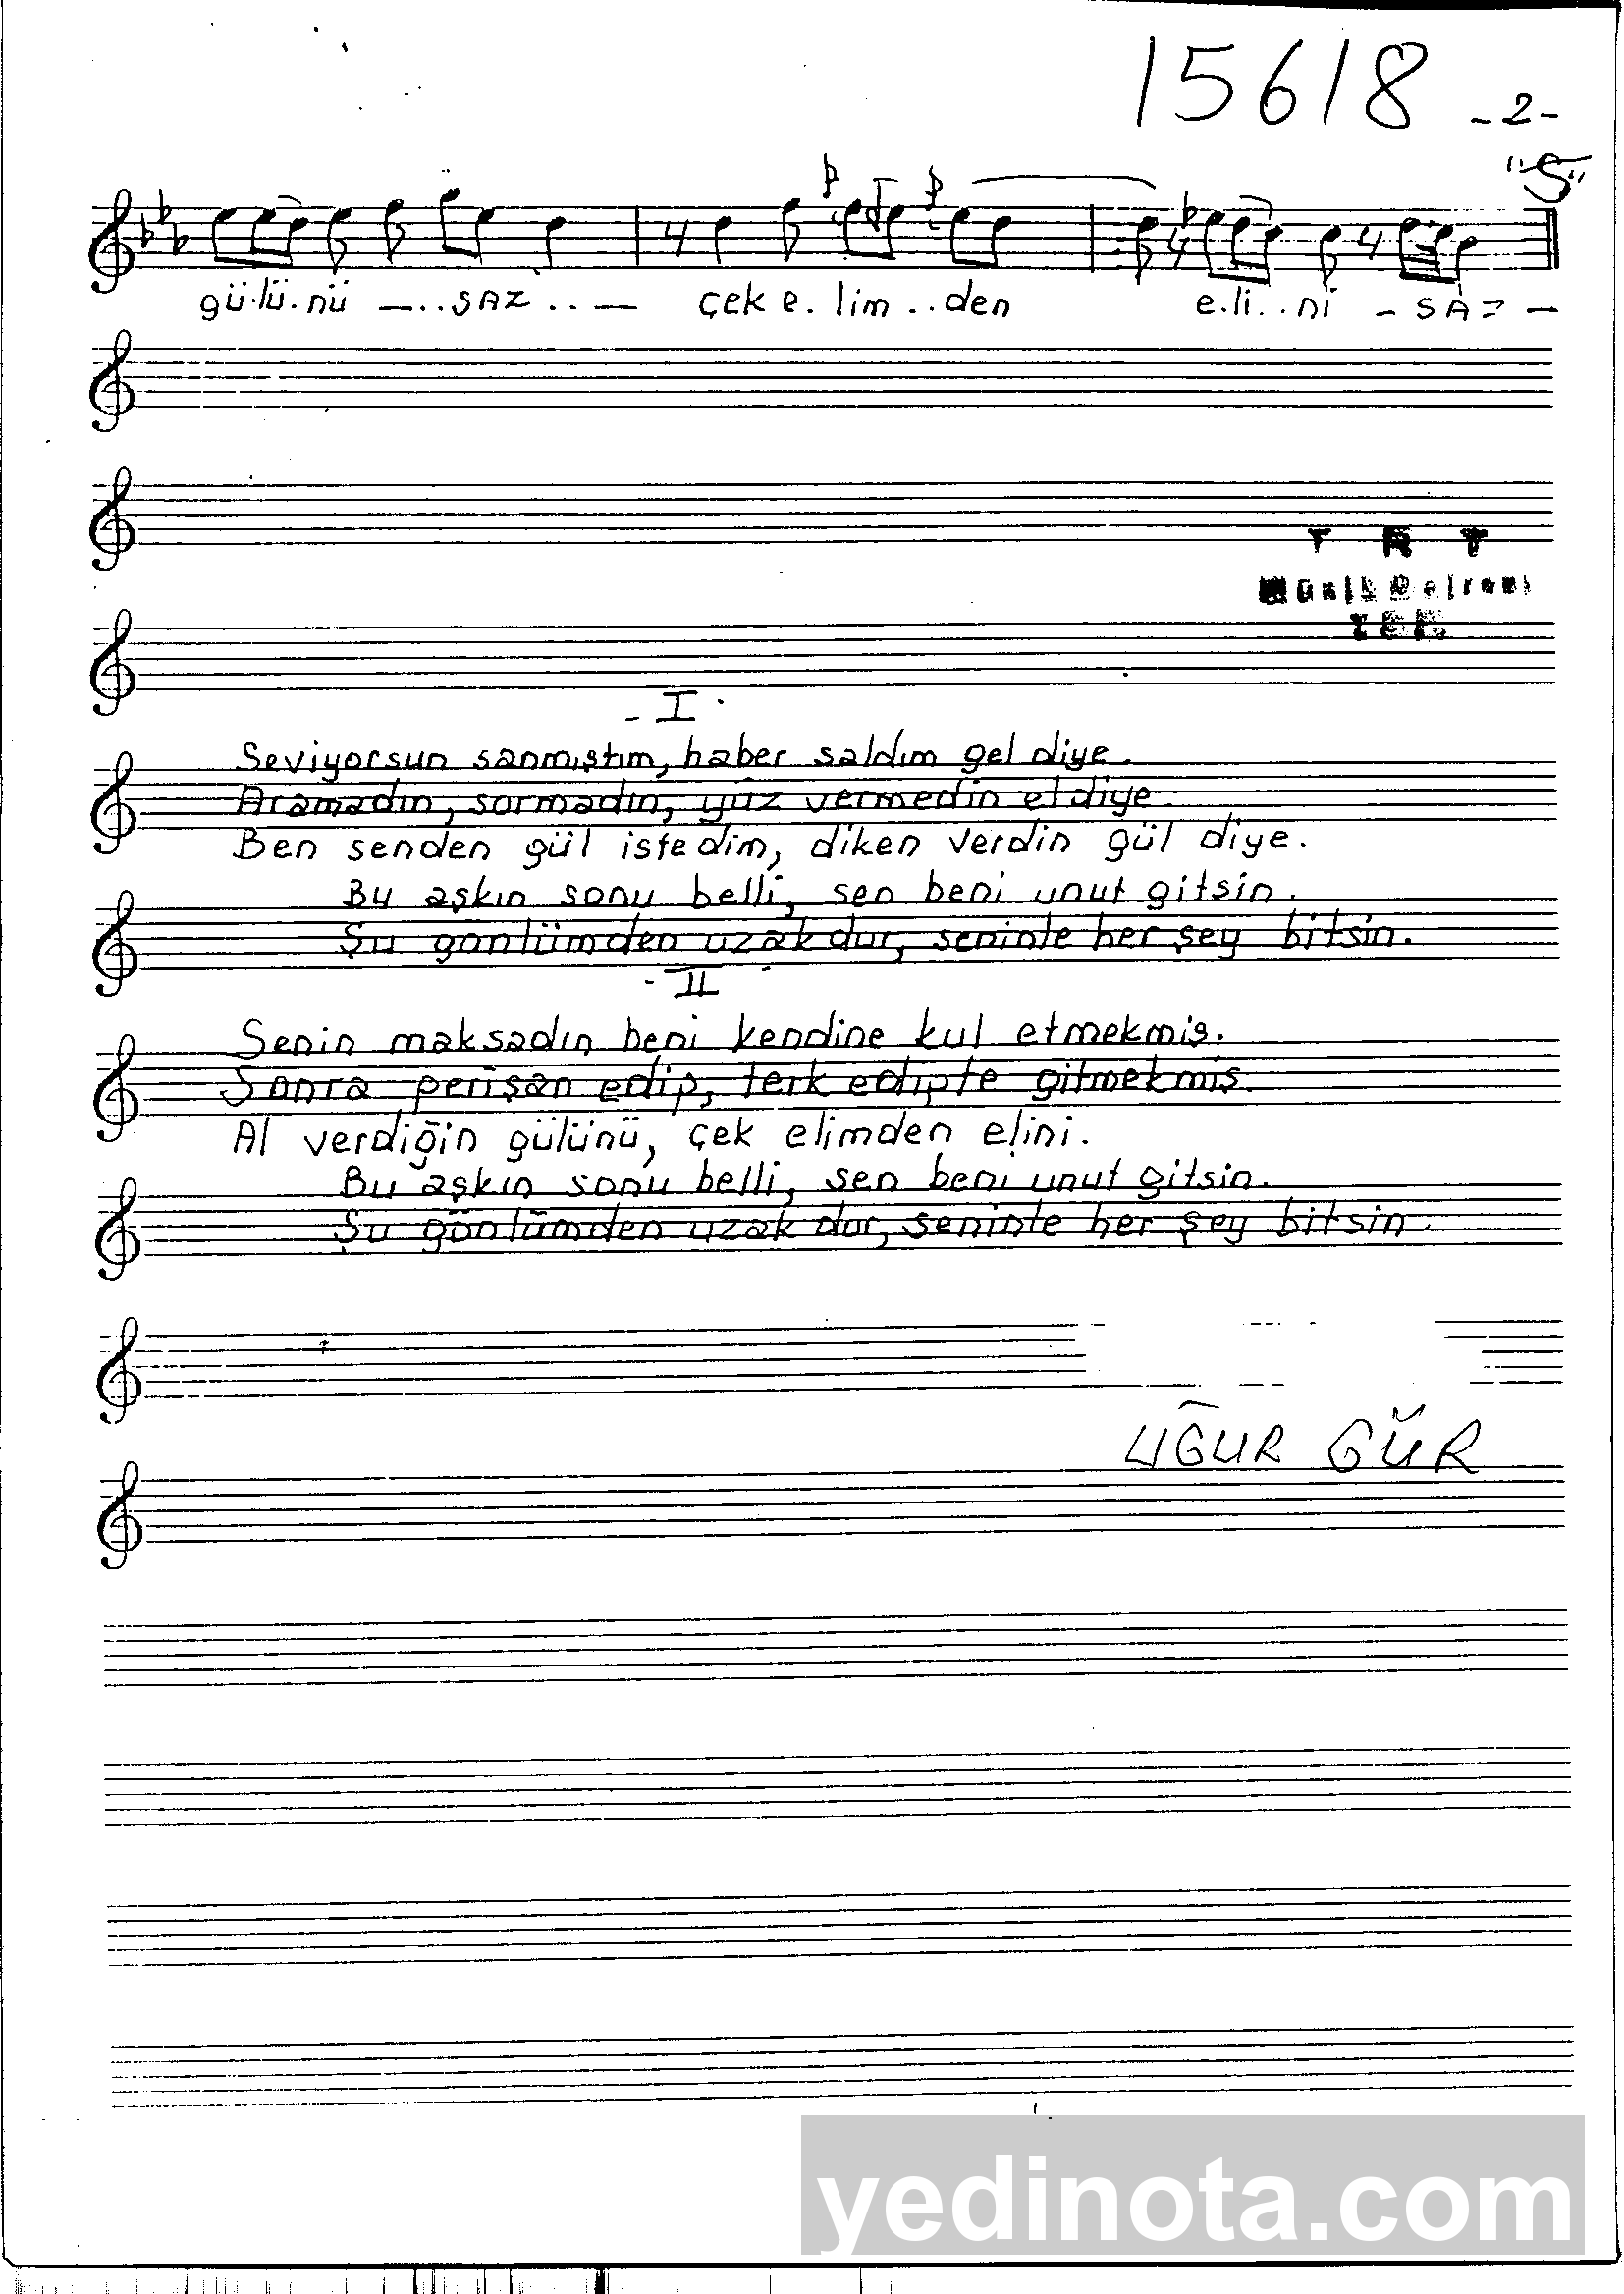 15618 -2-
"S"
gü.lü.nü -..SAZ..- çek e.lim..den e.li..ni - SAZ -
T R T
-I-
Seviyorsun sanmıştım, haber saldım gel diye.
Aramadın, sormadın, yüz vermedin el diye.
Ben senden gül istedim, diken verdin gül diye.
Bu aşkın sonu belli, sen beni unut gitsin.
Şu gönlümden uzak dur, seninle her şey bitsin.
-II-
Senin maksadın beni kendine kul etmekmiş.
Sonra perişan edip, terk edipte gitmekmiş.
Al verdiğin gülünü, çek elimden elini.
Bu aşkın sonu belli, sen beni unut gitsin.
Şu gönlümden uzak dur, seninle her şey bitsin.
UĞUR GÜR
yedinota.com